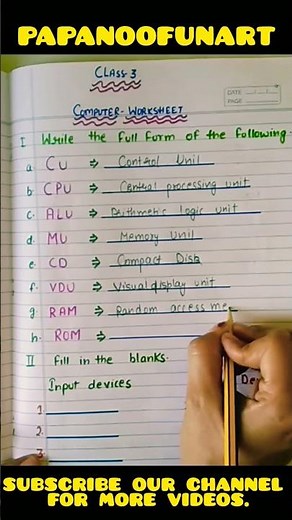 PAPANOOFUNART
CLASS-3
DATE
PAGE
COMPUTER-WORKSHEET
I Write the full form of the following.
a. CU ⇒ Control Unit
b. CPU ⇒ Central processing unit
c. ALU ⇒ Arithmetic logic unit
d. MU ⇒ Memory Unit
e. CD ⇒ Compact Disk
f. VDU ⇒ Visual display unit
g. RAM ⇒ Random access me
h. ROM ⇒
II Fill in the blanks.
Input devices
1.
2.
3
SUBSCRIBE OUR CHANNEL
FOR MORE VIDEOS.